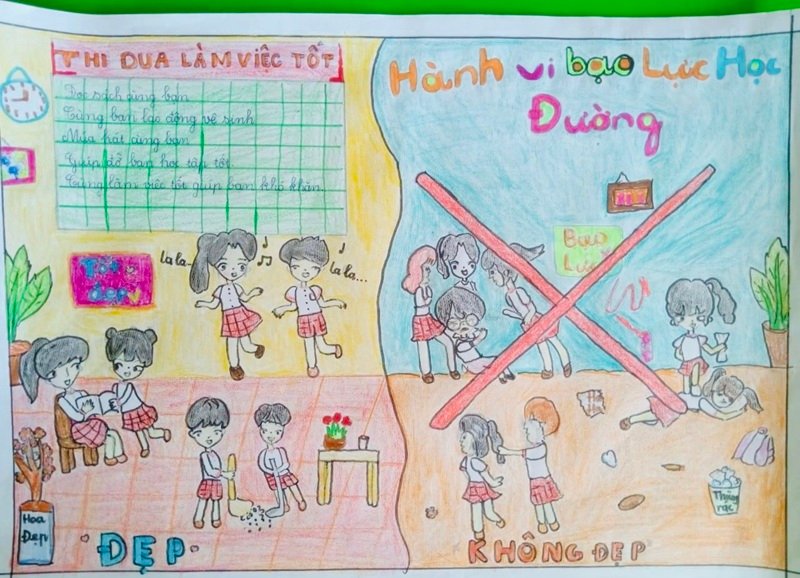 THI ĐUA LÀM VIỆC TỐT
Đọc sách cùng bạn
Cùng bạn lao động vệ sinh
Múa hát cùng bạn
Giúp đỡ bạn học tập tốt
Cùng làm việc tốt giúp bạn khó khăn
Tốt
đẹp
la la...
la la...
Hoa
Đẹp
ĐẸP
Hành vi bạo Lực Học
Đường
Bạo
Lực
Thùng
rác
KHÔNG ĐẸP